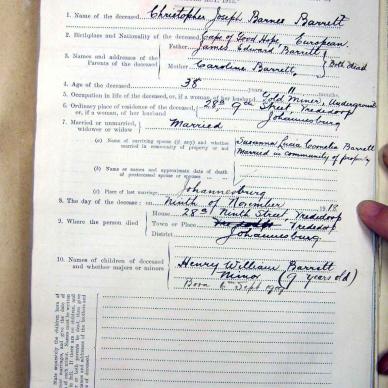 1. Name of the deceased, Christopher Joseph Barnes Barrett
2. Birthplace and Nationality of the deceased, Cape of Good Hope European
3. Names and addresses of the Parents of the deceased
Father, James Edward Barrett
Mother Caroline Barrett
Both dead
4. Age of the deceased, 38 years, 11
5. Occupation in life of the deceased, or, if a woman, of her husband Gold Miner, Underground
6. Ordinary place of residence of the deceased, or, if a woman, of her husband 28a 9th Street Vrededorp
Johannesburg
7. Married or unmarried, widower or widow Married
(a) Name of surviving spouse (if any) and whether married in community of property or not
Susanna Lucia Cornelia Barrett
Married in community of property
(b) Name or names and approximate date of death of predeceased spouse or spouses
(c) Place of last marriage, Johannesburg
8. The day of the decease: on Ninth of November 1918
9. Where the person died
House 28a Ninth Street, Vrededorp
Town or Place Vrededorp
District Johannesburg
10. Names of children of deceased and whether majors or minors
Henry William Barrett
Minor (9 years old)
Born Sept. 1909